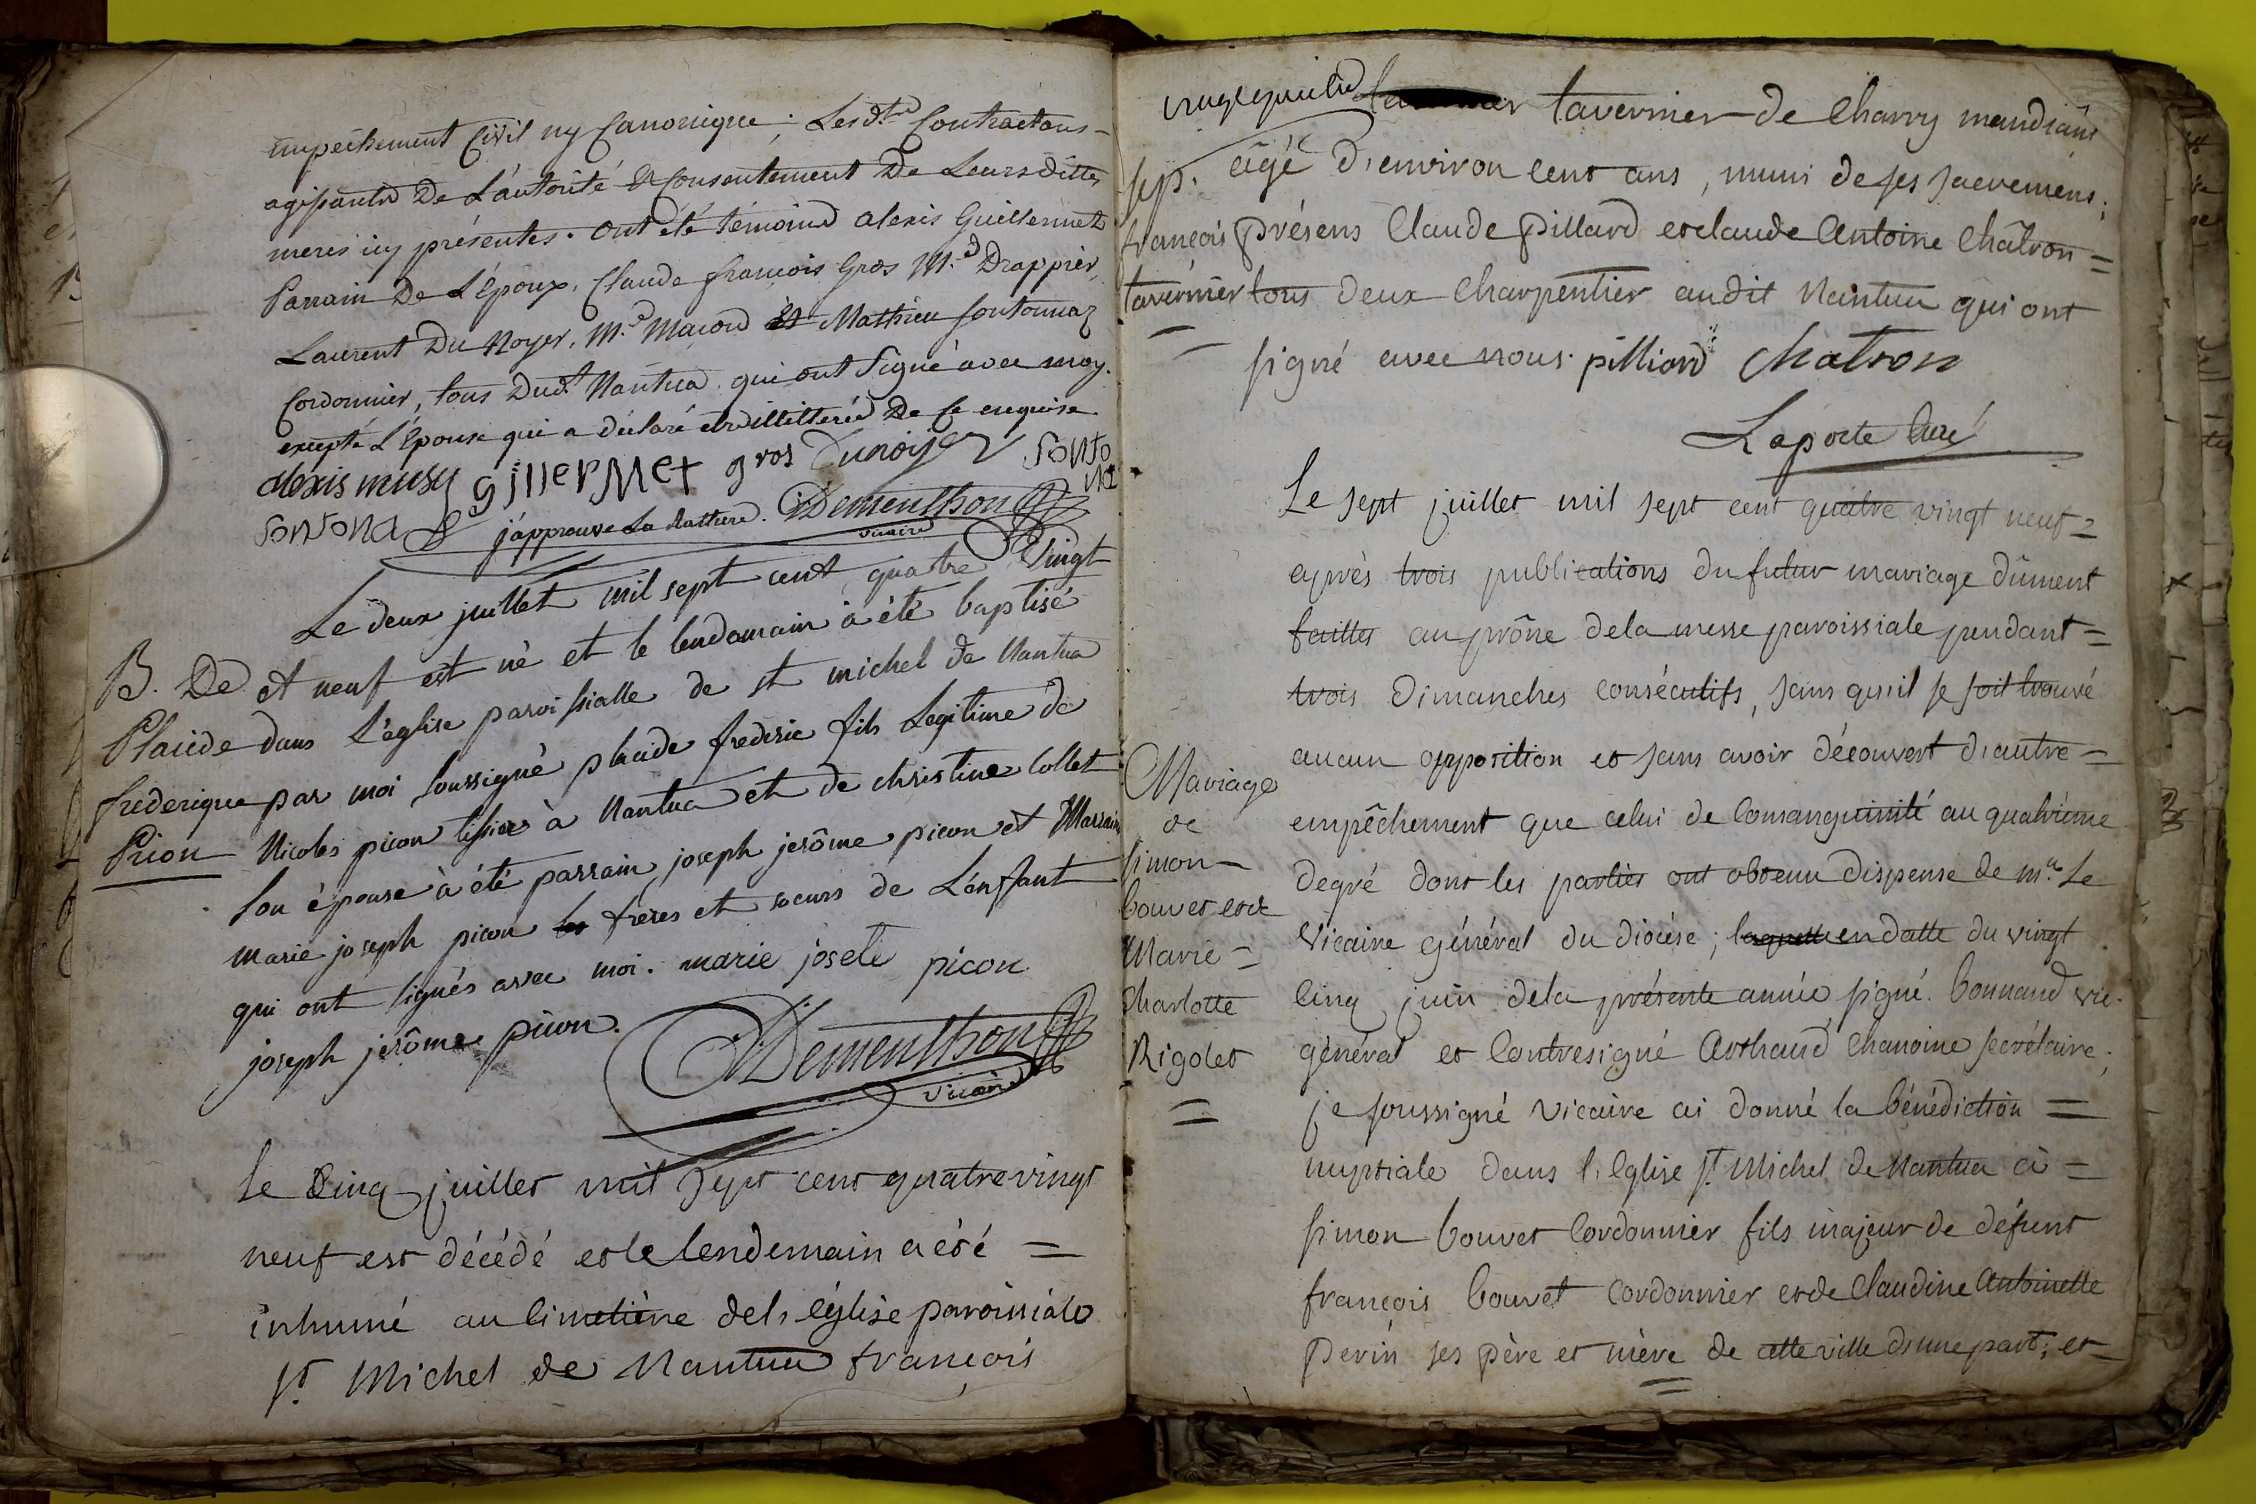 empechement Civil ny Canonique; Lesd.ts Contractans
agissants De L'autorité Et Consentement De Leurs dittes
meres icy présentes. Ont été témoins alexis Guillermet
Parrain De L'Epoux, Claude françois Gros M.d Drappier,
Laurent Du Noyer, M.d Macon Et Mathieu fontonnaz
Cordonnier, tous Dud.t Nantua qui ont Signé avec moy.
excepté L'Epouse qui a déclaré être illittérée De Ce enquise
alexis musy gillermet gros Dunoyer fonto
na
fontona j'approuve La Rature. Dementhon
vicaire
Le deux juillet mil sept cent quatre Vingt
B. De et neuf est né et le lendemain à été baptisé
Placide dans L'église paroissialle de st michel de Nantua
frederique par moi soussigné placide frederic fils Legitime de
Picon Nicolas picon tissier à Nantua et de christine Collet
son épouse à été parrain joseph jerôme picon et Marraine
marie joseph picon les freres et soeurs de L'enffant
qui ont signés avec moi. marie josete picon
joseph jerôme picon. Dementhon
vicaire
le Cinq juillet mil sept cent quatre vingt
neuf est décédé et le lendemain a été =
inhumé au Cimetière de l'église paroissiale
st Michel de Nantua françois
tavernier de Charry mandiant
sep. âgé d'environ cent ans, muni de ses sacremens;
françois présens Claude pillard et claude Antoine Châtron =
tavernier tous deux Charpentier audit Nantua qui ont
= signé avec nous. pilliard Chatron
Laporte Curé
Le sept juillet mil sept cent quatre vingt neuf =
après trois publications du futur mariage dûment
faittes au prône de la messe paroissiale pendant =
trois Dimanches consécutifs, sans qu'il se soit trouvé
aucun opposition et sans avoir découvert d'autre =
Mariage
de empêchement que celui de Consanguinité au quatrième
simon degré dont les parties ont obtenu dispense de m.r Le
bouvet et de
Marie = Vicaire général du diocése; en datte du vingt
Charlotte Cinq juin de la présente année, signé. bonnaud vic.
Rigolet général et Contresigné Arthaud Chanoine secrétaire;
= je soussigné Vicaire ai donné la bénédiction =
nuptiale dans l'église st. Michel de Nantua à =
simon bouvet Cordonnier fils majeur de défunt
françois bouvet Cordonnier et de Claudine Antoinette
Perin ses père et mère de cette ville d'une part; et